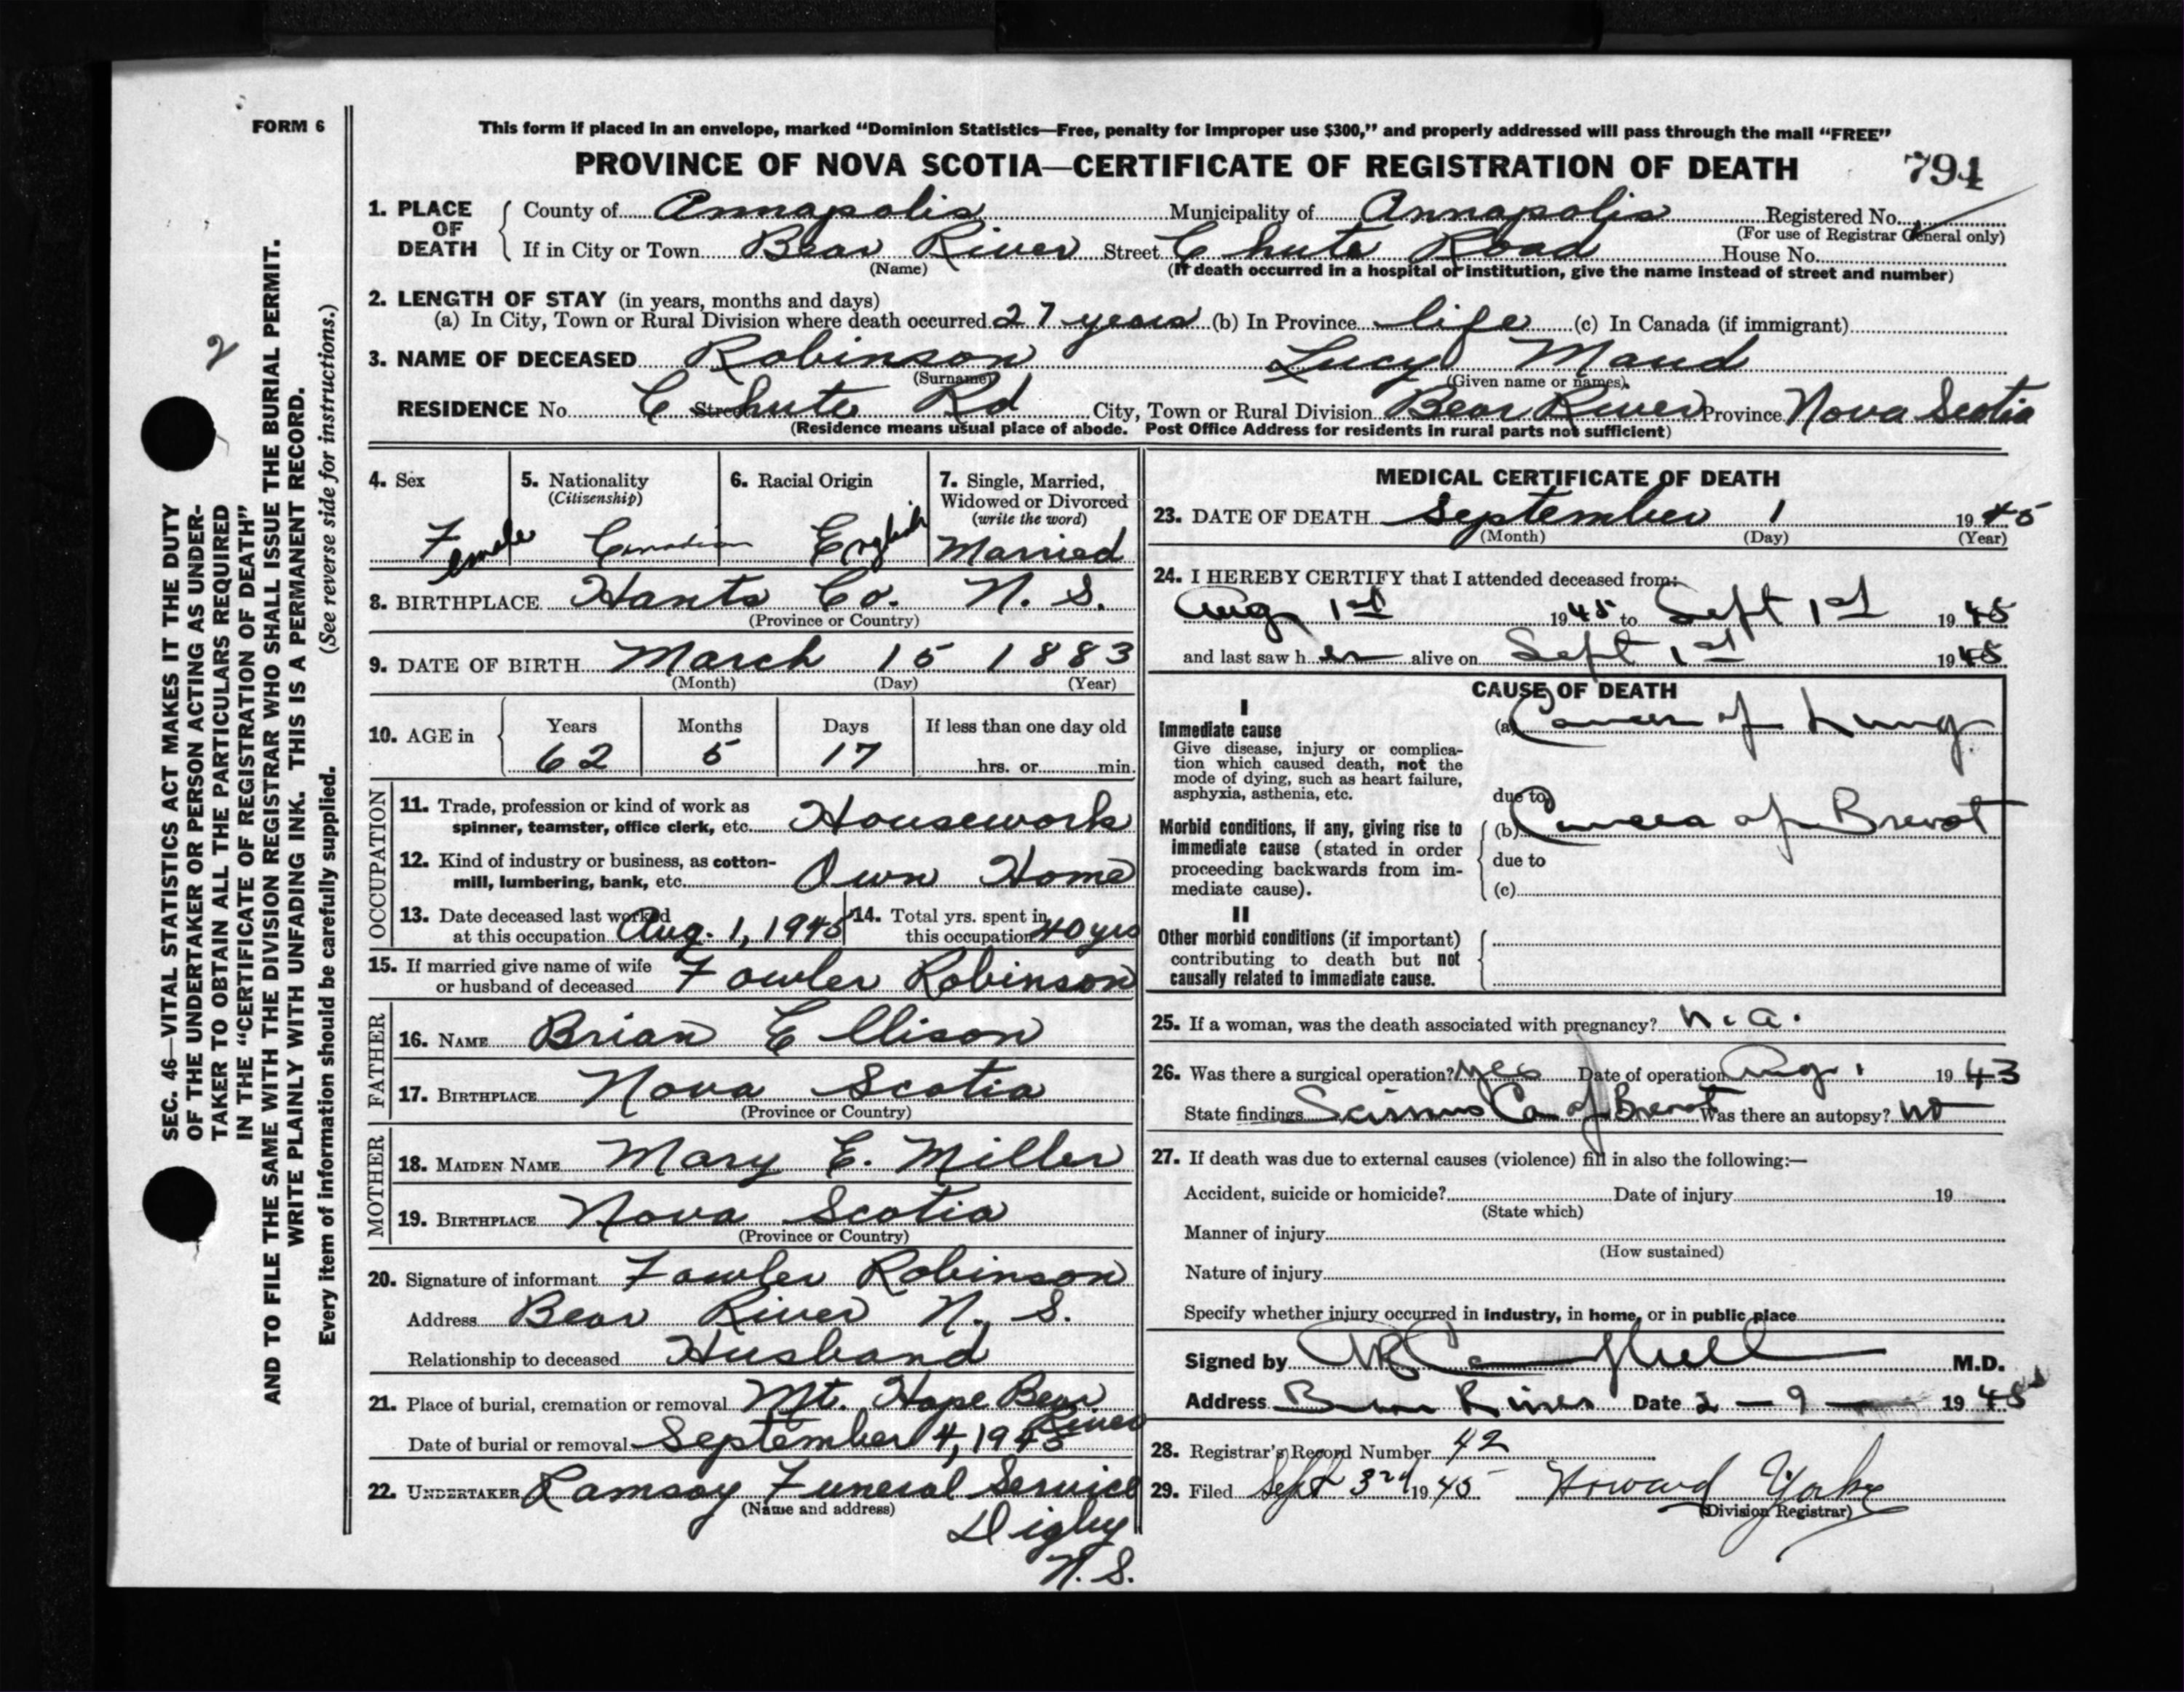 FORM 6
This form if placed in an envelope, marked “Dominion Statistics—Free, penalty for improper use $300,” and properly addressed will pass through the mail “FREE”
PROVINCE OF NOVA SCOTIA—CERTIFICATE OF REGISTRATION OF DEATH
794
1. PLACE OF DEATH
County of Annapolis Municipality of Annapolis Registered No.
(For use of Registrar General only)
If in City or Town Bear River Street Chute Road House No.
(Name) (If death occurred in a hospital or institution, give the name instead of street and number)
2. LENGTH OF STAY (in years, months and days)
(a) In City, Town or Rural Division where death occurred 27 years (b) In Province life (c) In Canada (if immigrant)
3. NAME OF DECEASED Robinson Lucy Maud
(Surname) (Given name or names)
RESIDENCE No. Street Chute Rd City, Town or Rural Division Bear River Province Nova Scotia
(Residence means usual place of abode. Post Office Address for residents in rural parts not sufficient)
4. Sex
Female
5. Nationality
(Citizenship)
Canadian
6. Racial Origin
English
7. Single, Married,
Widowed or Divorced
(write the word)
Married
8. BIRTHPLACE Hants Co. N. S.
(Province or Country)
9. DATE OF BIRTH March 15 1883
(Month) (Day) (Year)
10. AGE in
Years Months Days If less than one day old
62 5 17 hrs. or min.
OCCUPATION
11. Trade, profession or kind of work as
spinner, teamster, office clerk, etc. Housework
12. Kind of industry or business, as cotton-
mill, lumbering, bank, etc. Own Home
13. Date deceased last worked
at this occupation Aug. 1, 1945
14. Total yrs. spent in
this occupation 40 yrs
15. If married give name of wife
or husband of deceased Fowler Robinson
FATHER
16. NAME Brian Ellison
17. BIRTHPLACE Nova Scotia
(Province or Country)
MOTHER
18. MAIDEN NAME Mary E. Miller
19. BIRTHPLACE Nova Scotia
(Province or Country)
20. Signature of informant Fowler Robinson
Address Bear River N. S.
Relationship to deceased Husband
21. Place of burial, cremation or removal Mt. Hope Bear River
Date of burial or removal September 4, 1945
22. UNDERTAKER Ramsay Funeral Service
(Name and address)
Digby
N. S.
MEDICAL CERTIFICATE OF DEATH
23. DATE OF DEATH September 1 1945
(Month) (Day) (Year)
24. I HEREBY CERTIFY that I attended deceased from:
Aug 1st 1945 to Sept 1st 1945
and last saw her alive on Sept 1st 1945
CAUSE OF DEATH
I
Immediate cause
Give disease, injury or complica-
tion which caused death, not the
mode of dying, such as heart failure,
asphyxia, asthenia, etc.
(a) Cancer of Lung
due to
Morbid conditions, if any, giving rise to
immediate cause (stated in order
proceeding backwards from im-
mediate cause).
(b) Cancer of Breast
due to
(c)
II
Other morbid conditions (if important)
contributing to death but not
causally related to immediate cause.
25. If a woman, was the death associated with pregnancy? n.a.
26. Was there a surgical operation? Yes Date of operation Aug. 1943
State findings Ca of Breast Was there an autopsy? no
27. If death was due to external causes (violence) fill in also the following:—
Accident, suicide or homicide? Date of injury 19
(State which)
Manner of injury
(How sustained)
Nature of injury
Specify whether injury occurred in industry, in home, or in public place
Signed by Campbell M.D.
Address Bear River Date 2 - 9 - 1945
28. Registrar's Record Number 42
29. Filed Sept 3rd 1945 Howard Yorke
(Division Registrar)
2
SEC. 46—VITAL STATISTICS ACT MAKES IT THE DUTY
OF THE UNDERTAKER OR PERSON ACTING AS UNDER-
TAKER TO OBTAIN ALL THE PARTICULARS REQUIRED
IN THE “CERTIFICATE OF REGISTRATION OF DEATH”
AND TO FILE THE SAME WITH THE DIVISION REGISTRAR WHO SHALL ISSUE THE BURIAL PERMIT.
WRITE PLAINLY WITH UNFADING INK. THIS IS A PERMANENT RECORD.
Every item of information should be carefully supplied. (See reverse side for instructions.)